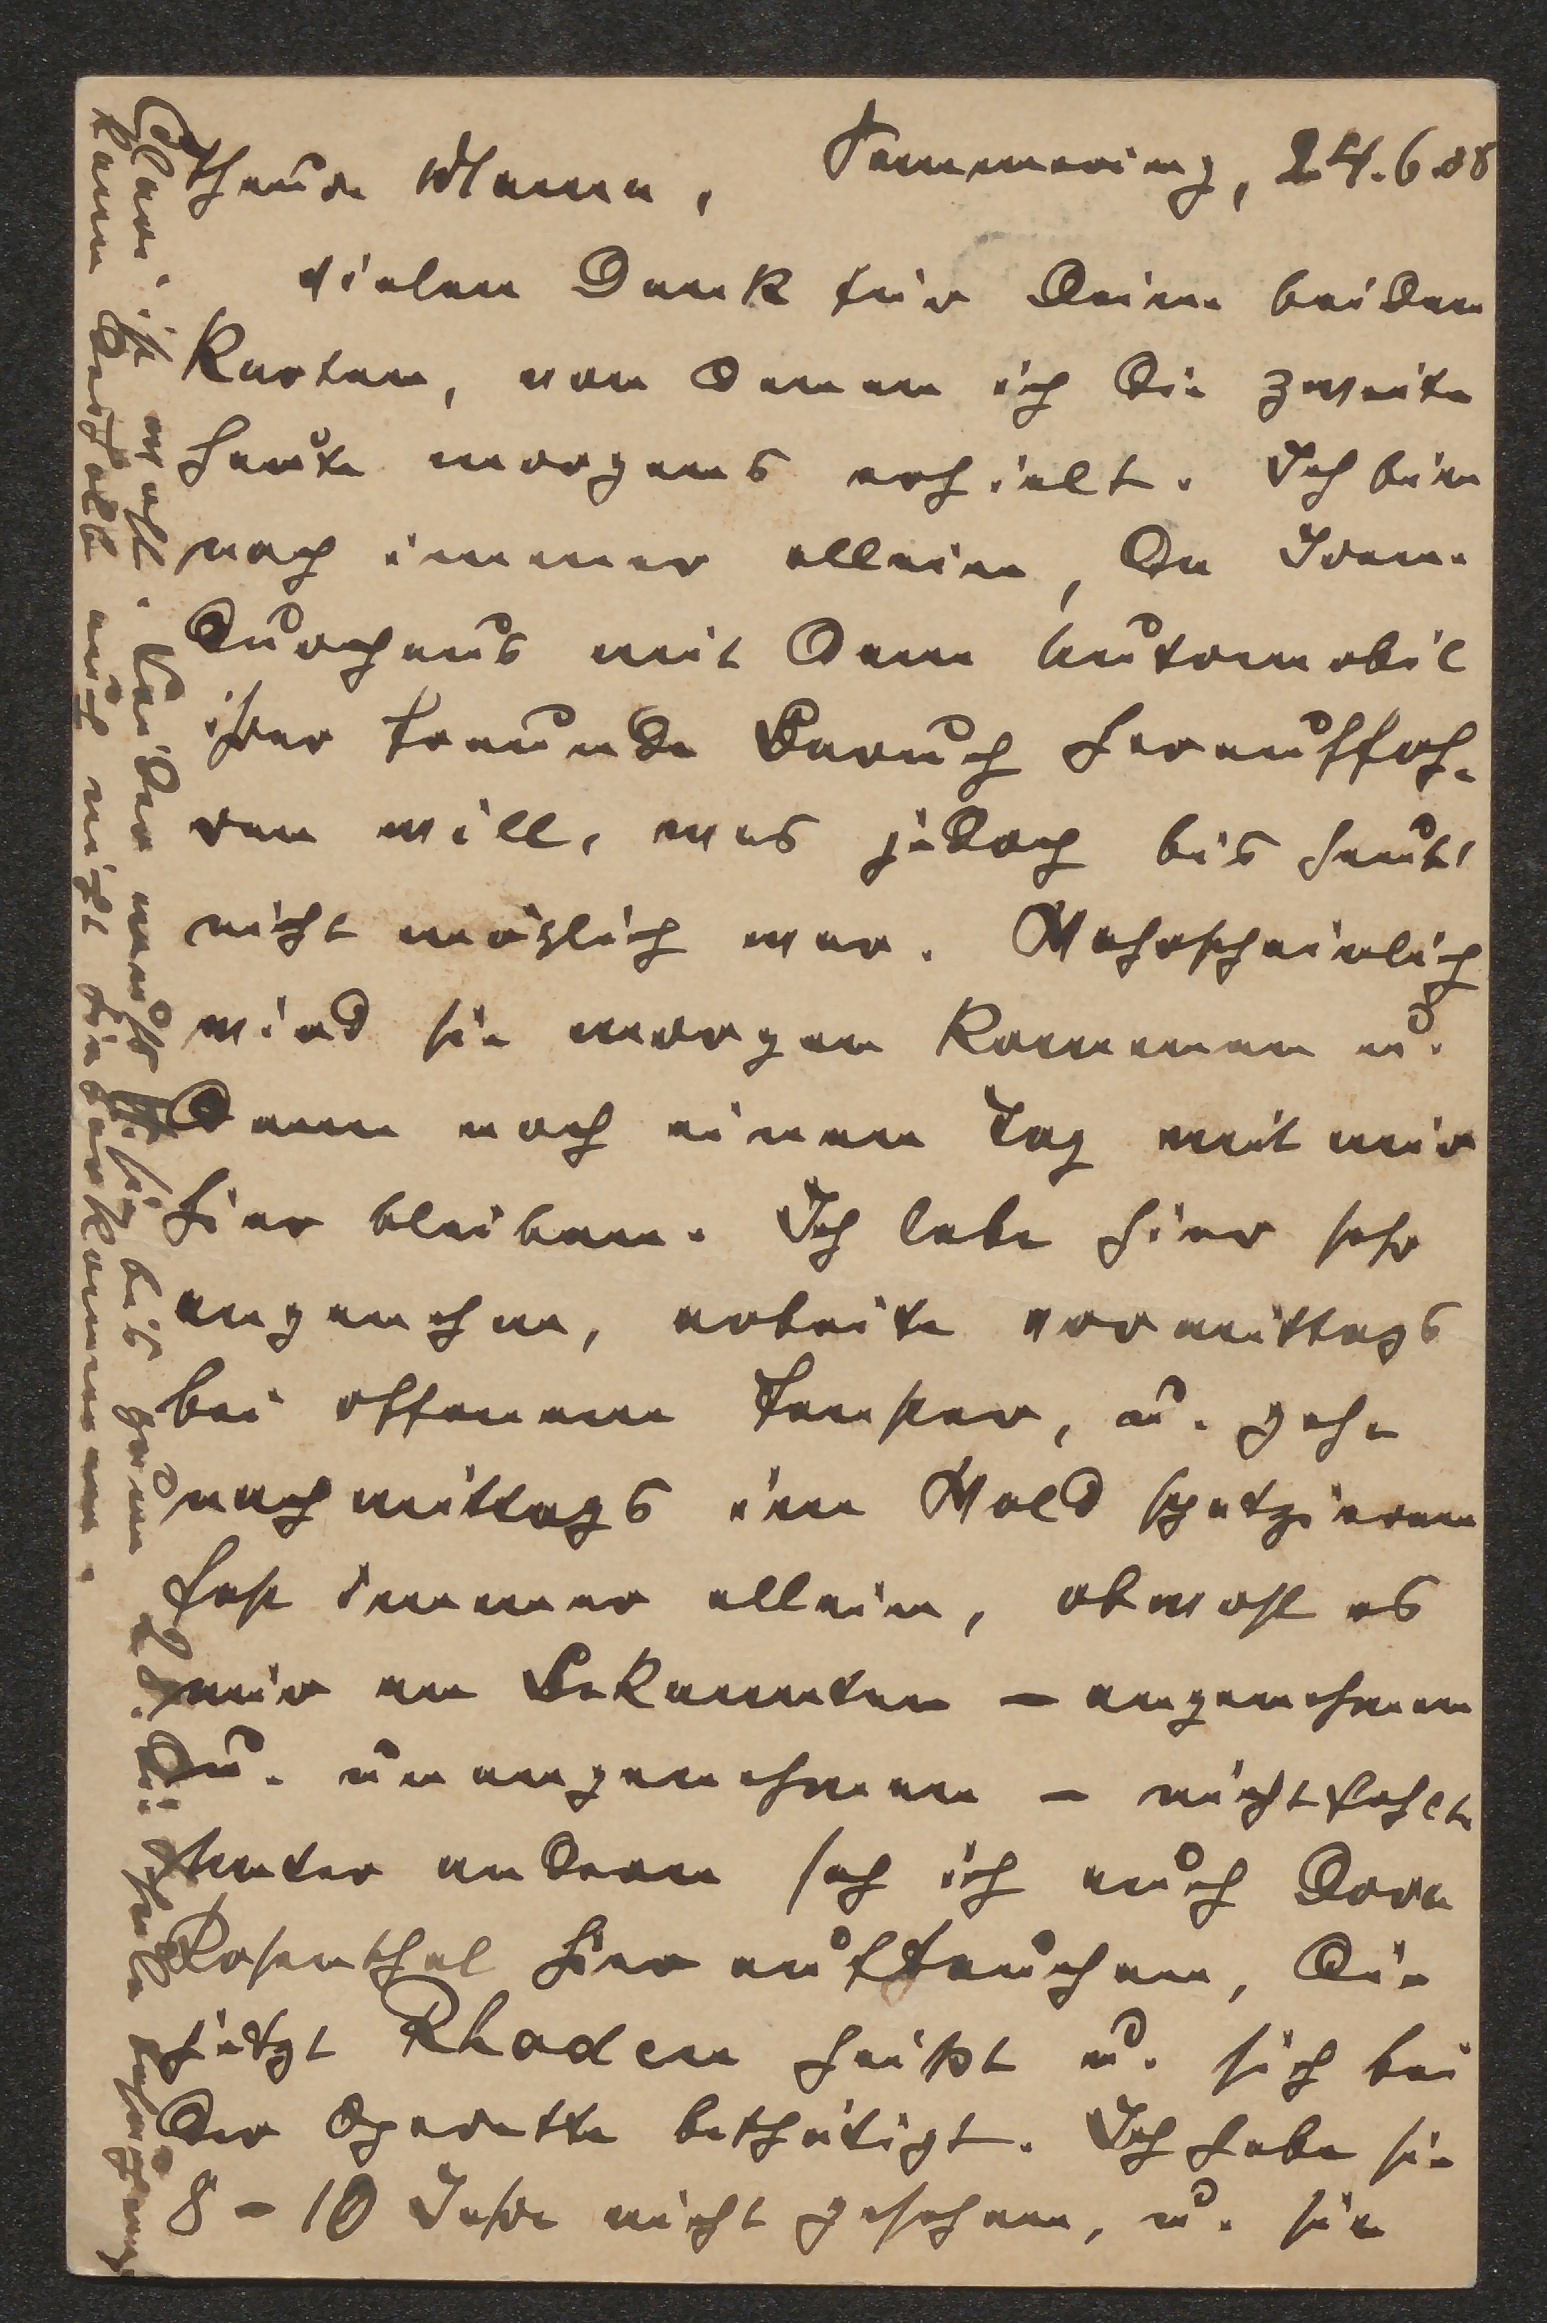 Semmering, 24.6.08
Theure Mama,
vielen Dank für Deine beiden
Karten, von denen ich die zweite
heute morgens erhielt. Ich bin
noch immer allein, da Irene
durchaus mit dem Automobil
ihrer Freunde Baruch herauffah-
ren will, was jedoch bis heute
nicht möglich war. Wahrscheinlich
wird sie morgen kommen u.
dann noch einen Tag mit mir
hier bleiben. Ich lebe hier sehr
angenehm, arbeite vormittags
bei offenem Fenster, u. gehe
nachmittags im Wald spatzieren
fast immer allein, obwohl es
mir an Bekannten – angenehmen
u. unangenehmen – nicht fehlt.
Unter andern sah ich auch Dora
Rosenthal hier auftauchen, die
jetzt Rhoden heißt u. sich bei
der Operette bethätigt. Ich habe sie
8–10 Jahre nicht gesehen, u. sie
Clari ist wohl. Leider muß sie bis zum 28. die Schule besuchen,
kann deshalb auch nicht hierherkommen.